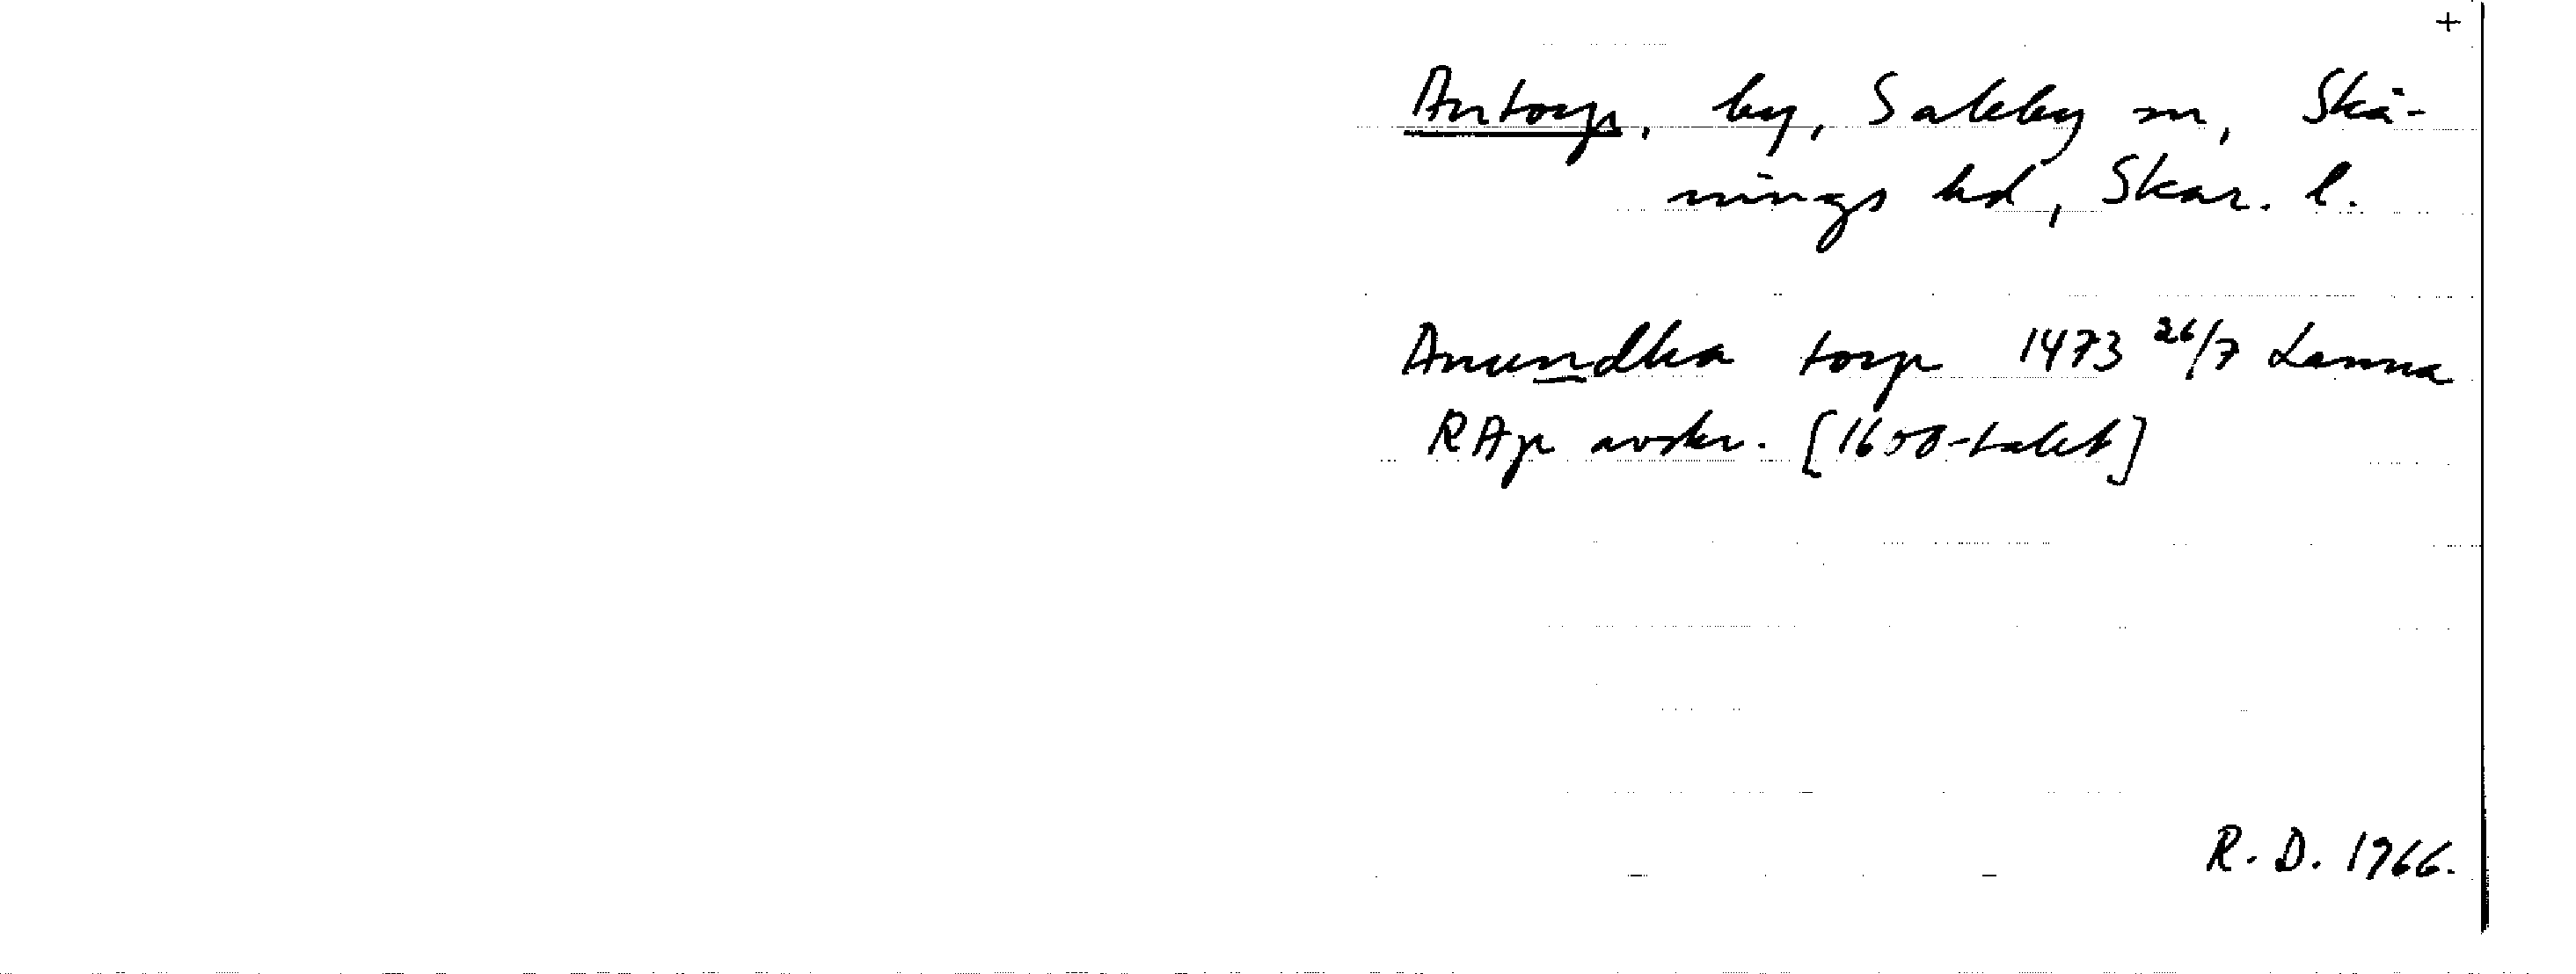 +
Antorp, by, Saleby sn, Skå-
nings hd, Skar. l.
Anundka torp 1473 26/7 Lanna
RAp avskr. [1600-talet]
R. D. 1966.